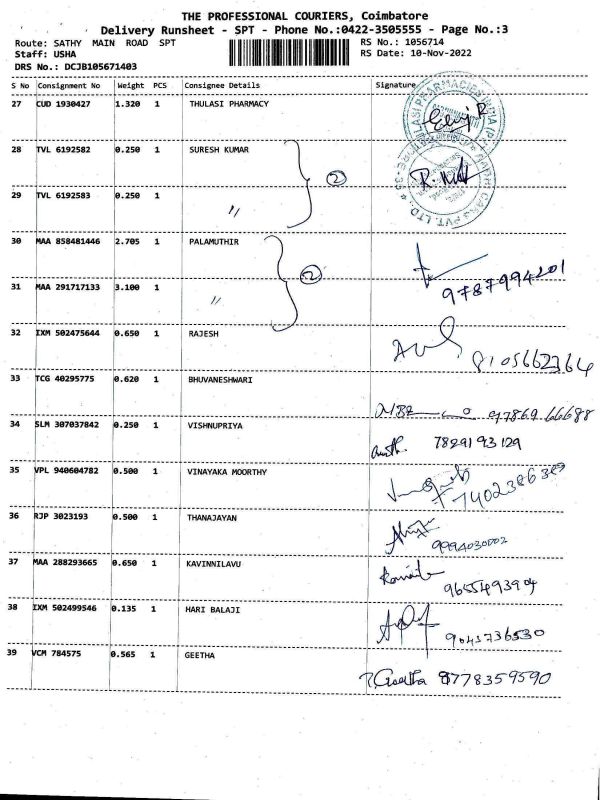 THE PROFESSIONAL COURIERS, Coimbatore
Delivery Runsheet - SPT - Phone No.:0422-3505555 - Page No.:3
Route: SATHY MAIN ROAD SPT RS No.: 1056714
Staff: USHA RS Date: 10-Nov-2022
DRS No.: DCJB105671403
S No Consignment No Weight PCS Consignee Details Signature
27 CUD 1930427 1.320 1 THULASI PHARMACY
28 TVL 6192582 0.250 1 SURESH KUMAR
2
29 TVL 6192583 0.250 1 〃
30 MAA 858481446 2.705 1 PALAMUTHIR
2
31 MAA 291717133 3.100 1 〃 9787994201
32 IXM 502475644 0.650 1 RAJESH 8105662364
33 TCG 40295775 0.620 1 BHUVANESHWARI 97869 66688
34 SLM 307037842 0.250 1 VISHNUPRIYA 7829193129
35 VPL 940604782 0.500 1 VINAYAKA MOORTHY
36 RJP 3023193 0.500 1 THANAJAYAN 9994030002
37 MAA 288293665 0.650 1 KAVINNILAVU 9655493904
38 IXM 502499546 0.135 1 HARI BALAJI 9043736530
39 VCM 784575 0.565 1 GEETHA Geetha 8778359590